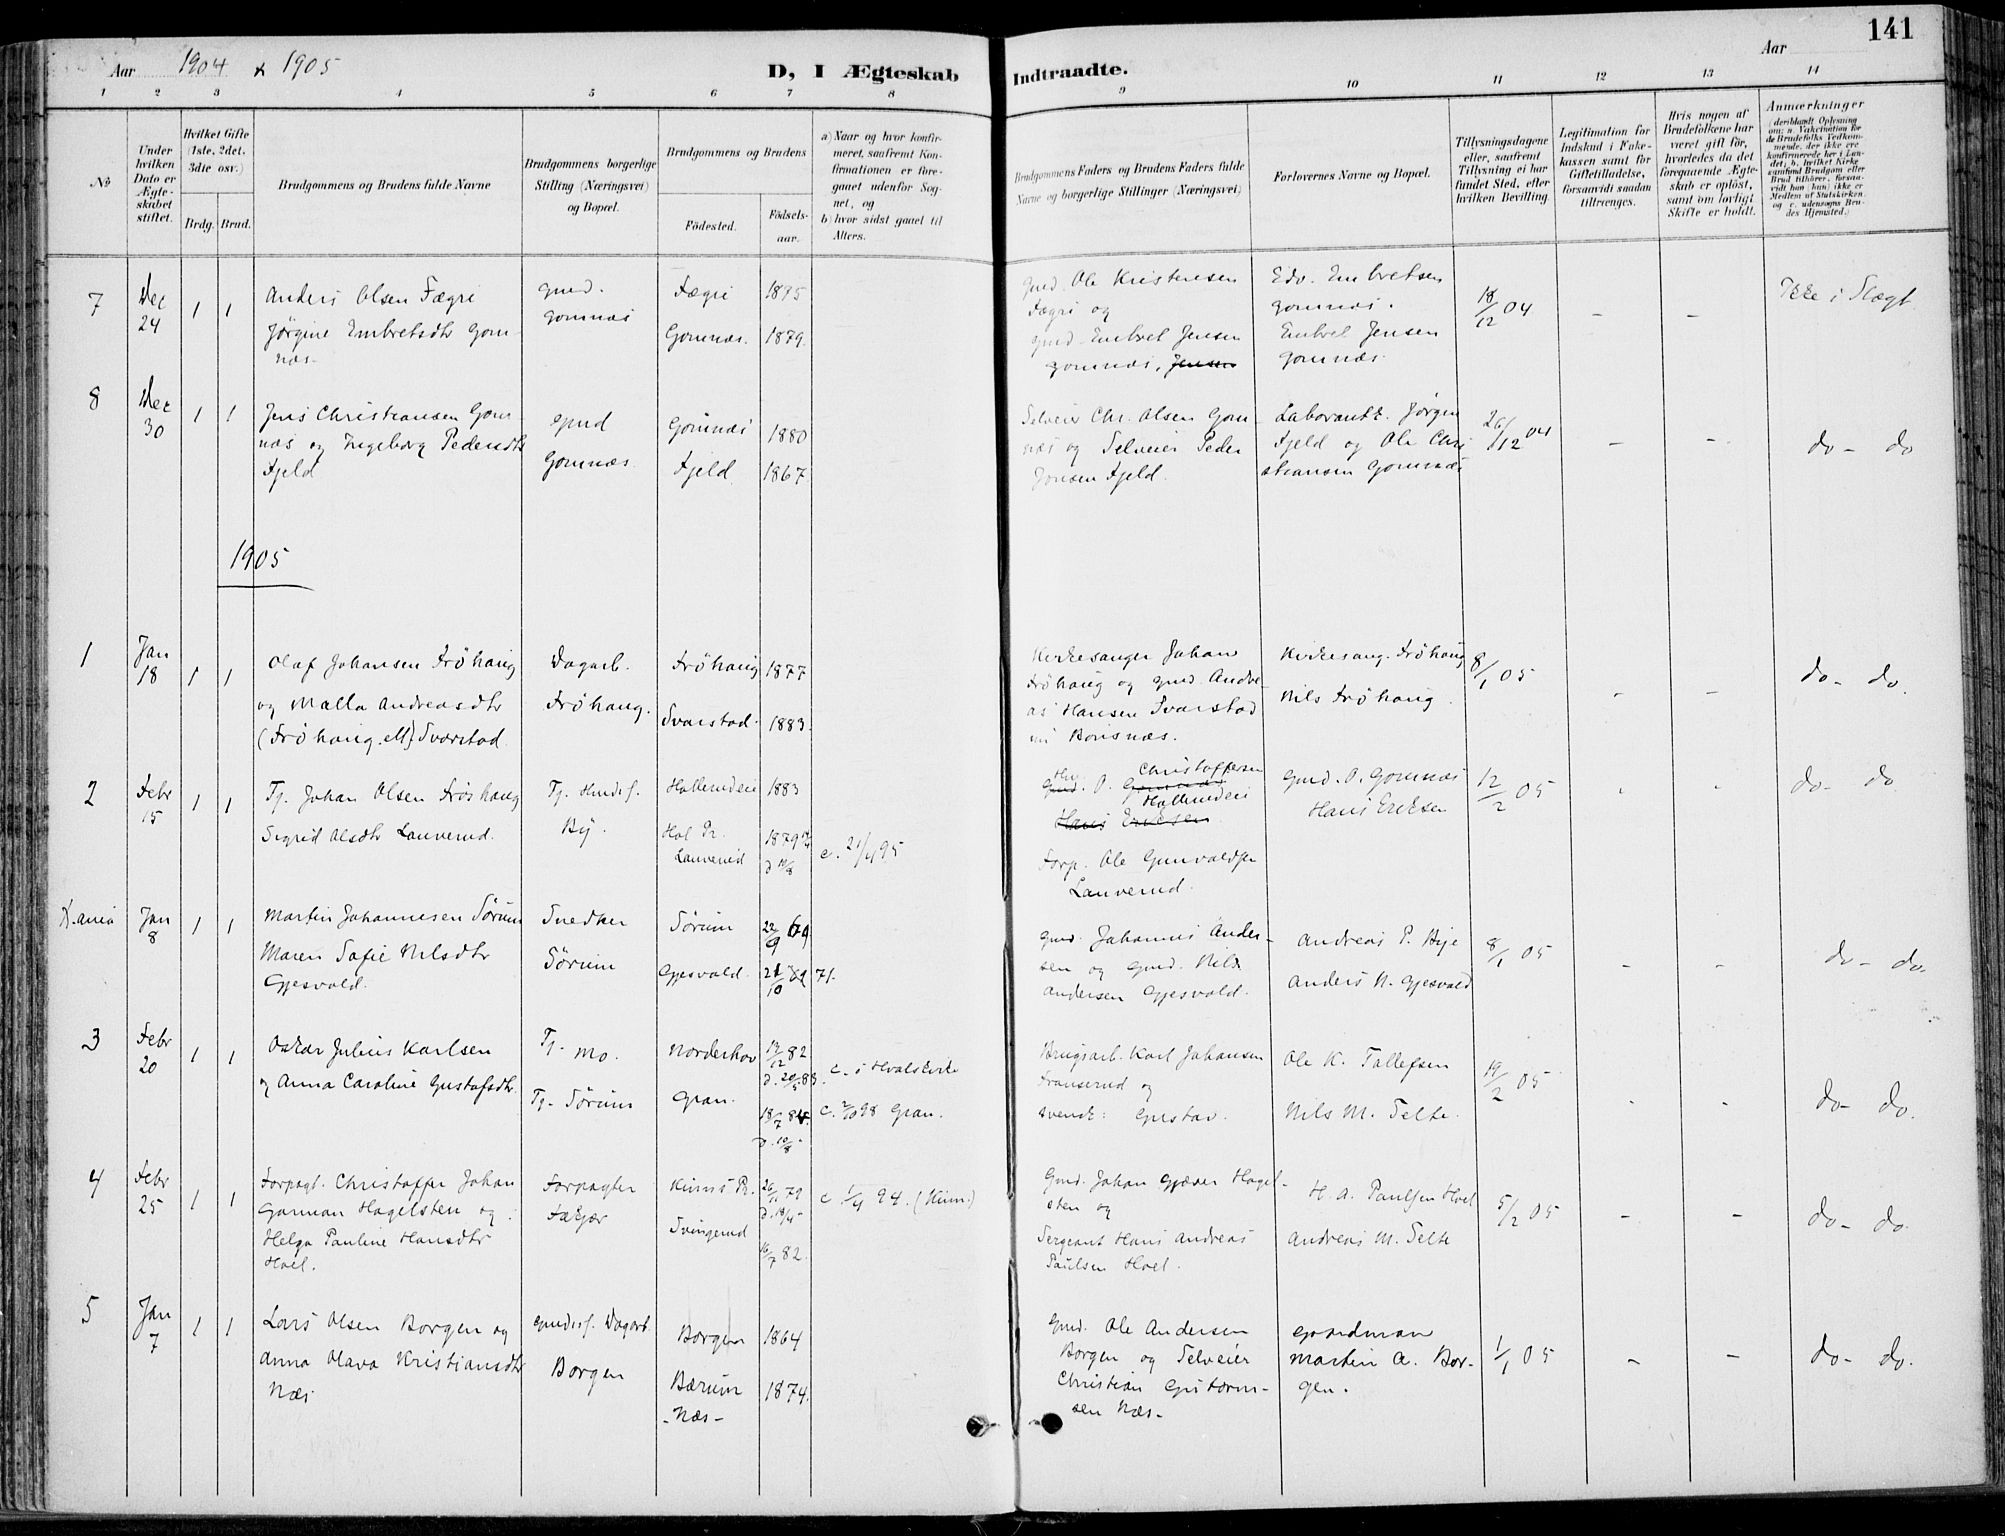 141
Aar 1904 & 1905
D, I Ægteskab Indtraadte.
Aar
1 2 3 4 5 6 7 8 9 10 11 12 13 14
No
Under hvilken Dato er Ægteskabet stiftet.
Hvilket Gifte (1ste, 2det, 3die osv.)
Brdg. Brud.
Brudgommens og Brudens fulde Navne
Brudgommens borgerlige Stilling (Næringsvei) og Bopæl.
Brudgommens og Brudens
Födested.
Födsels-aar.
a) Naar og hvor konfirmeret, saafremt Konfirmationen er foregaaet udenfor Sognet, og
b) hvor sidst gaaet til Alters.
Brudgommens Faders og Brudens Faders fulde Navne og borgerlige Stillinger (Næringsvei)
Forlovernes Navne og Bopæl.
Tillysningsdagene eller, saafremt Tillysning ei har fundet Sted, efter hvilken Bevilling.
Legitimation for Indskud i Enkekassen samt for Giftetilladelse, forsaavidt saadan tiltrænges.
Hvis nogen af Brudefolkene har været gift før, hvorledes da det foregaaende Ægteskab er oplöst, samt om lovligt Skifte er holdt.
Anmærkninger
7 Dec 24 1 1
Anders Olsen Fægri
Jørgine Embretsdtr Gomnæs.
Gmd. Gomnæs
Fægri 1875
Gomnæs. 1879.
Gmd. Ole Kristensen
Fægri og
Gmd. Embret Jensen
Gomnæs, Jensen
Edv. Embretsen
Gomnæs.
Embret Jensen
Gomnæs.
18/12 04 – –
Ikke i Slægt
8 Dec 30 1 1
Jens Christiansen Gomnæs og Ingeborg Pedersdtr
Fjeld
Gmd
Gomnæs
Gomnæs 1880
Fjeld 1867
Selveier Chr. Olsen Gomnæs og Selveier Peder
Jonsen Fjeld.
Laborantk. Jørgen
Fjeld og Ole Christiansen Gomnæs
26/12 04 – –
do – do
1905
1 Jan 18 1 1
Olaf Johansen Frøhaug
og Malla Andreasdtr
(Frøhaug ell) Svarstad
Dagarb.
Frøhaug.
Frøhaug 1877
Svarstad. 1883
Kirkesanger Johan
Frøhaug og Gmd. Andreas Hansen Svarstad
nu Bønsnæs.
Kirkesang. Frøhaug
Nils Frøhaug.
8/1 05 – –
do – do.
2 Febr 15 1 1
Tj. Johan Olsen Frøshaug
Sigrid Olsdtr Lauverud.
Tj. Hmdsf.
By.
1883
Hol Pr.
Lauverud
1879
c. 21/4 95
Gmd. O. Christoffersen
Hans Eriksen
Forp. Ole Gunvaldsen
Lauverud.
Gmd. O. Gomnæs
Hans Eriksen
12/2 05
do – do
X.ania Jan 8 1 1
Martin Johannesen Sørum
Maren Sofie Nilsdtr
Gjesvold.
Snedker
Sørum
Sørum 22/9 69
Gjesvold. 21/10 71.
Gmd. Johannes Andersen og Gmd. Nils
Andersen Gjesvold.
Andreas P. Hye
Anders N. Gjesvold
8/1 05 – –
do – do
3 Febr 20 1 1
Oskar Julius Karlsen
og Anna Caroline Gustafsdtr
Tj. Mo.
Tj. Sørum
Norderhov 19/12 82
Gran. 18/7 84.
c. i Hvalskirke
c. 2/10 98 Gran.
Brugsarb. Karl Johansen
Franserud og
svensk: Gustav.
Ole K. Tollefsen
Nils M. Selte.
19/2 05 – –
do – do.
4 Febr 25 1 1
Forpagt. Christoffer Johan
Garman Hagelsten og
Helga Pauline Hansdtr
Hoel.
Forpagter
Fækjær
Kinns Pr. 26/11 79
Svingerud 16/7 82.
c. 1/4 94. (Kinn.)
Gmd. Johan Gjæver Hagelsten og
Sergeant Hans Andreas
Paulsen Hoel.
H. A. Paulsen Hoel
Andreas M. Selte
5/2 05 – –
do – do.
5 Jan 7 1 1
Lars Olsen Borgen og
Anna Olava Kristiansdtr
Næs
Gmdsf. Dagarb.
Borgen
Borgen 1864
Bærum 1874.
– Næs –
Gmd. Ole Andersen
Borgen og Selveier
Christian Gutormsen Næs –
Gaardman
Martin A. Borgen.
1/1 05 – –
do – do.